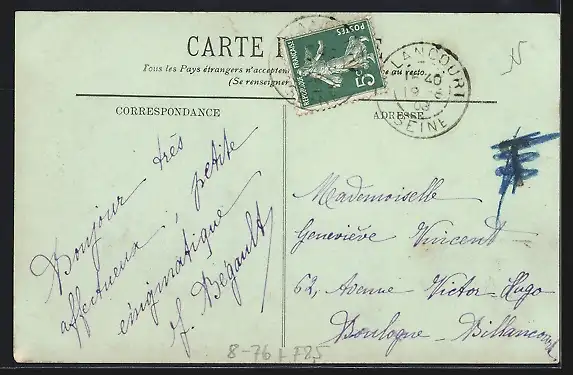 CARTE
Tous les Pays étrangers n'acceptent au recto
(Se renseigner
POSTES
RÉPUBLIQUE FRANÇAISE
5c
LANCOURT
SEINE
CORRESPONDANCE
ADRESSE
Bonjour très
affectueux, petite
énigmatique
J. Bégault
Mademoiselle
Geneviève Vincent
62, Avenue Victor-Hugo
Boulogne-Billancourt
8-76 F 725